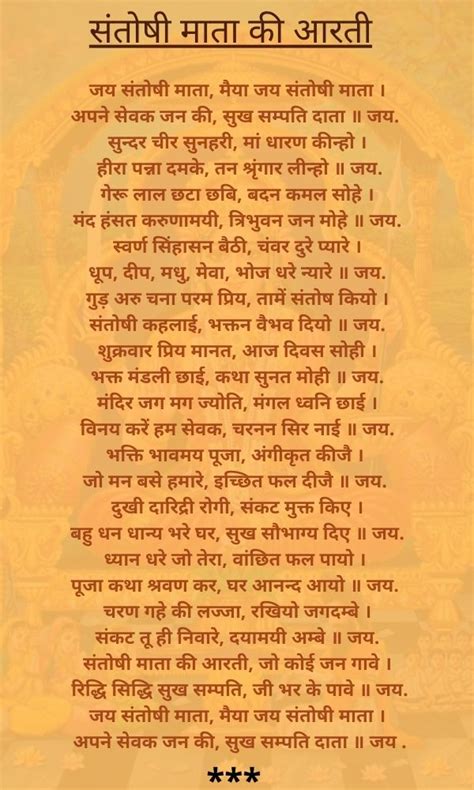 संतोषी माता की आरती
जय संतोषी माता, मैया जय संतोषी माता ।
अपने सेवक जन की, सुख सम्पति दाता ॥ जय.
सुन्दर चीर सुनहरी, मां धारण कीन्हो ।
हीरा पन्ना दमके, तन श्रृंगार लीन्हो ॥ जय.
गेरू लाल छटा छबि, बदन कमल सोहे ।
मंद हंसत करुणामयी, त्रिभुवन जन मोहे ॥ जय.
स्वर्ण सिंहासन बैठी, चंवर दुरे प्यारे ।
धूप, दीप, मधु, मेवा, भोज धरे न्यारे ॥ जय.
गुड़ अरु चना परम प्रिय, तामें संतोष कियो ।
संतोषी कहलाई, भक्तन वैभव दियो ॥ जय.
शुक्रवार प्रिय मानत, आज दिवस सोही ।
भक्त मंडली छाई, कथा सुनत मोही ॥ जय.
मंदिर जग मग ज्योति, मंगल ध्वनि छाई ।
विनय करें हम सेवक, चरनन सिर नाई ॥ जय.
भक्ति भावमय पूजा, अंगीकृत कीजै ।
जो मन बसे हमारे, इच्छित फल दीजै ॥ जय.
दुखी दारिद्री रोगी, संकट मुक्त किए ।
बहु धन धान्य भरे घर, सुख सौभाग्य दिए ॥ जय.
ध्यान धरे जो तेरा, वांछित फल पायो ।
पूजा कथा श्रवण कर, घर आनन्द आयो ॥ जय.
चरण गहे की लज्जा, रखियो जगदम्बे ।
संकट तू ही निवारे, दयामयी अम्बे ॥ जय.
संतोषी माता की आरती, जो कोई जन गावे ।
रिद्धि सिद्धि सुख सम्पति, जी भर के पावे ॥ जय.
जय संतोषी माता, मैया जय संतोषी माता ।
अपने सेवक जन की, सुख सम्पति दाता ॥ जय .
***